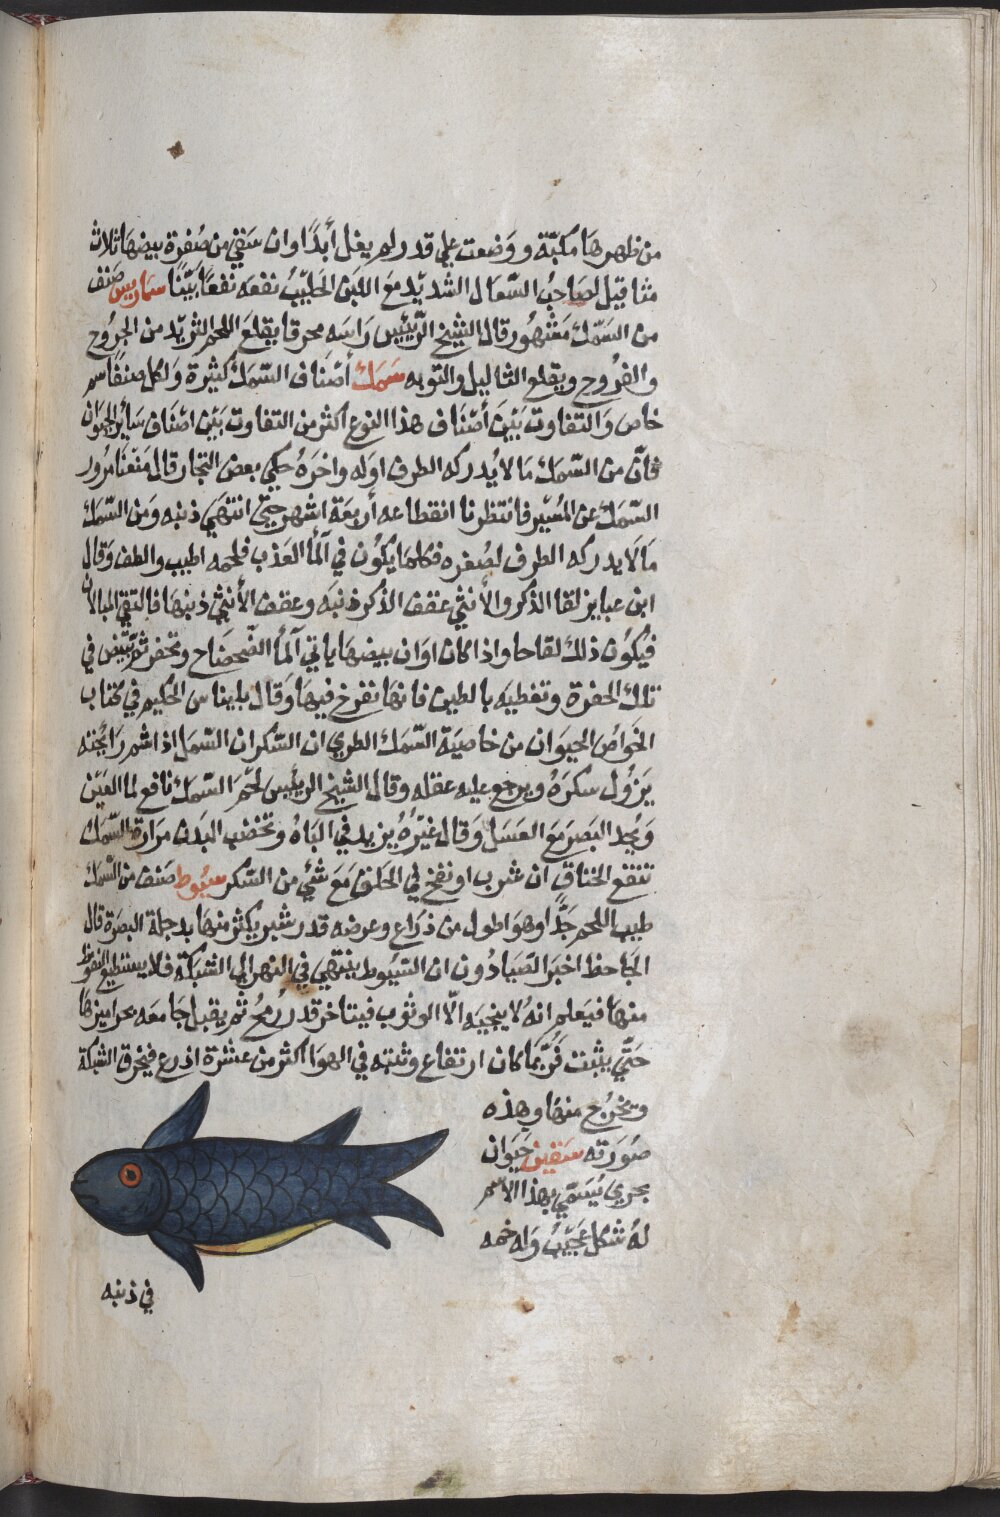 من ظهرها مكبّة ووضعت على قدر لم يغل أبدًا وان سقي من صفرة بيضها ثلاث
مثاقيل لصاحب السعال الشديد مع اللبن الحليب نفعه نفعا بيّنا سماريس صنف
من السمك مشهور قال الشيخ الرئيس راسه محرقا يقلع اللحم الزيد من الجروح
والقروح ويقلع الثاليل والتوبه سمك أصناف السمك كثيرة ولكل صنف اسم
خاص والتفاوت بين أصناف هذا النوع اكثر من التفاوت بين اصناف سائر الحيوان
فان من السمك ما لا يدركه الطرف اوله واخره حكي بعض التجار قال منعنا مرور
السمك عن المسير فانتظرنا انقطاعه أربعة اشهر حتى انتهي ذنبه ومن السمك
ما لا يدركه الطرف لصغره فكلما يكون في الما العذب فلحمه اطيب والطف وقال
ابن عبايز لقا الذكر والأنثي عقف الذكر ذنبه وعقف الأنثي ذنبها فالتقي المبالان
فيكون ذلك لقاحا واذا كان اوان بيضها ياتي الما الضحضاح وتحفر ثم تبيض في
تلك الحفرة وتغطيه بالطين فانها تفرخ فيها وقال بليناس الحكيم في كتاب
الخواص الحيوان من خاصية السمك الطري ان السكران السمل اذا شم رايحته
يزول سكره ويرجع عليه عقله وقال الشيخ الرئيس لحم السمك نافع لما العين
ويجد البصر مع العسل وقال غيره يزيد في الباه وتخضب البدن مرارة السمك
تنفع الخناق ان شرب او نفخ في الحلق مع شي من السكر سبوط صنف من السمك
طيب اللحم جدًا وهو اطول من ذراع وعرضه قدر شبر يكثر منها بدجلة البصرة قال
الجاحظ اخبر الصيادون ان السبوط ينتهي في النهر الي الشبكة فلا يستطيع النفوذ
منها فيعلم انه لا ينجيه الا الوثوب فيتاخر قدر رمح ثم يقبل جامعه جراميزها
حتي يثبت فربما كان ارتفاع وثبته في الهوا اكثر من عشرة اذرع فيخرق الشبكة
ويخرج منها وهذه
صورته سقين حيوان
بحري يسمي بهذا الاسم
له شكل عجيب وله خمه
في ذنبه